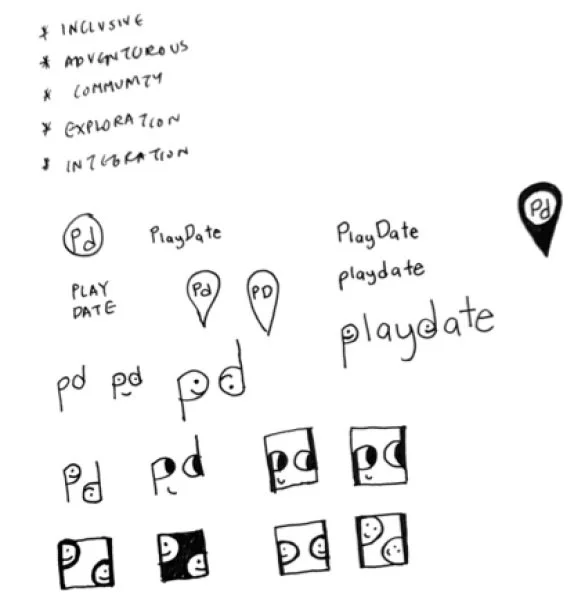 * INCLUSIVE
* ADVENTOROUS
* COMMUNITY
* EXPLORATION
* INTEGRATION
Pd PlayDate PlayDate Pd
playdate
PLAY Pd PD
DATE
playdate
pd pd pd
Pd pd pd pd